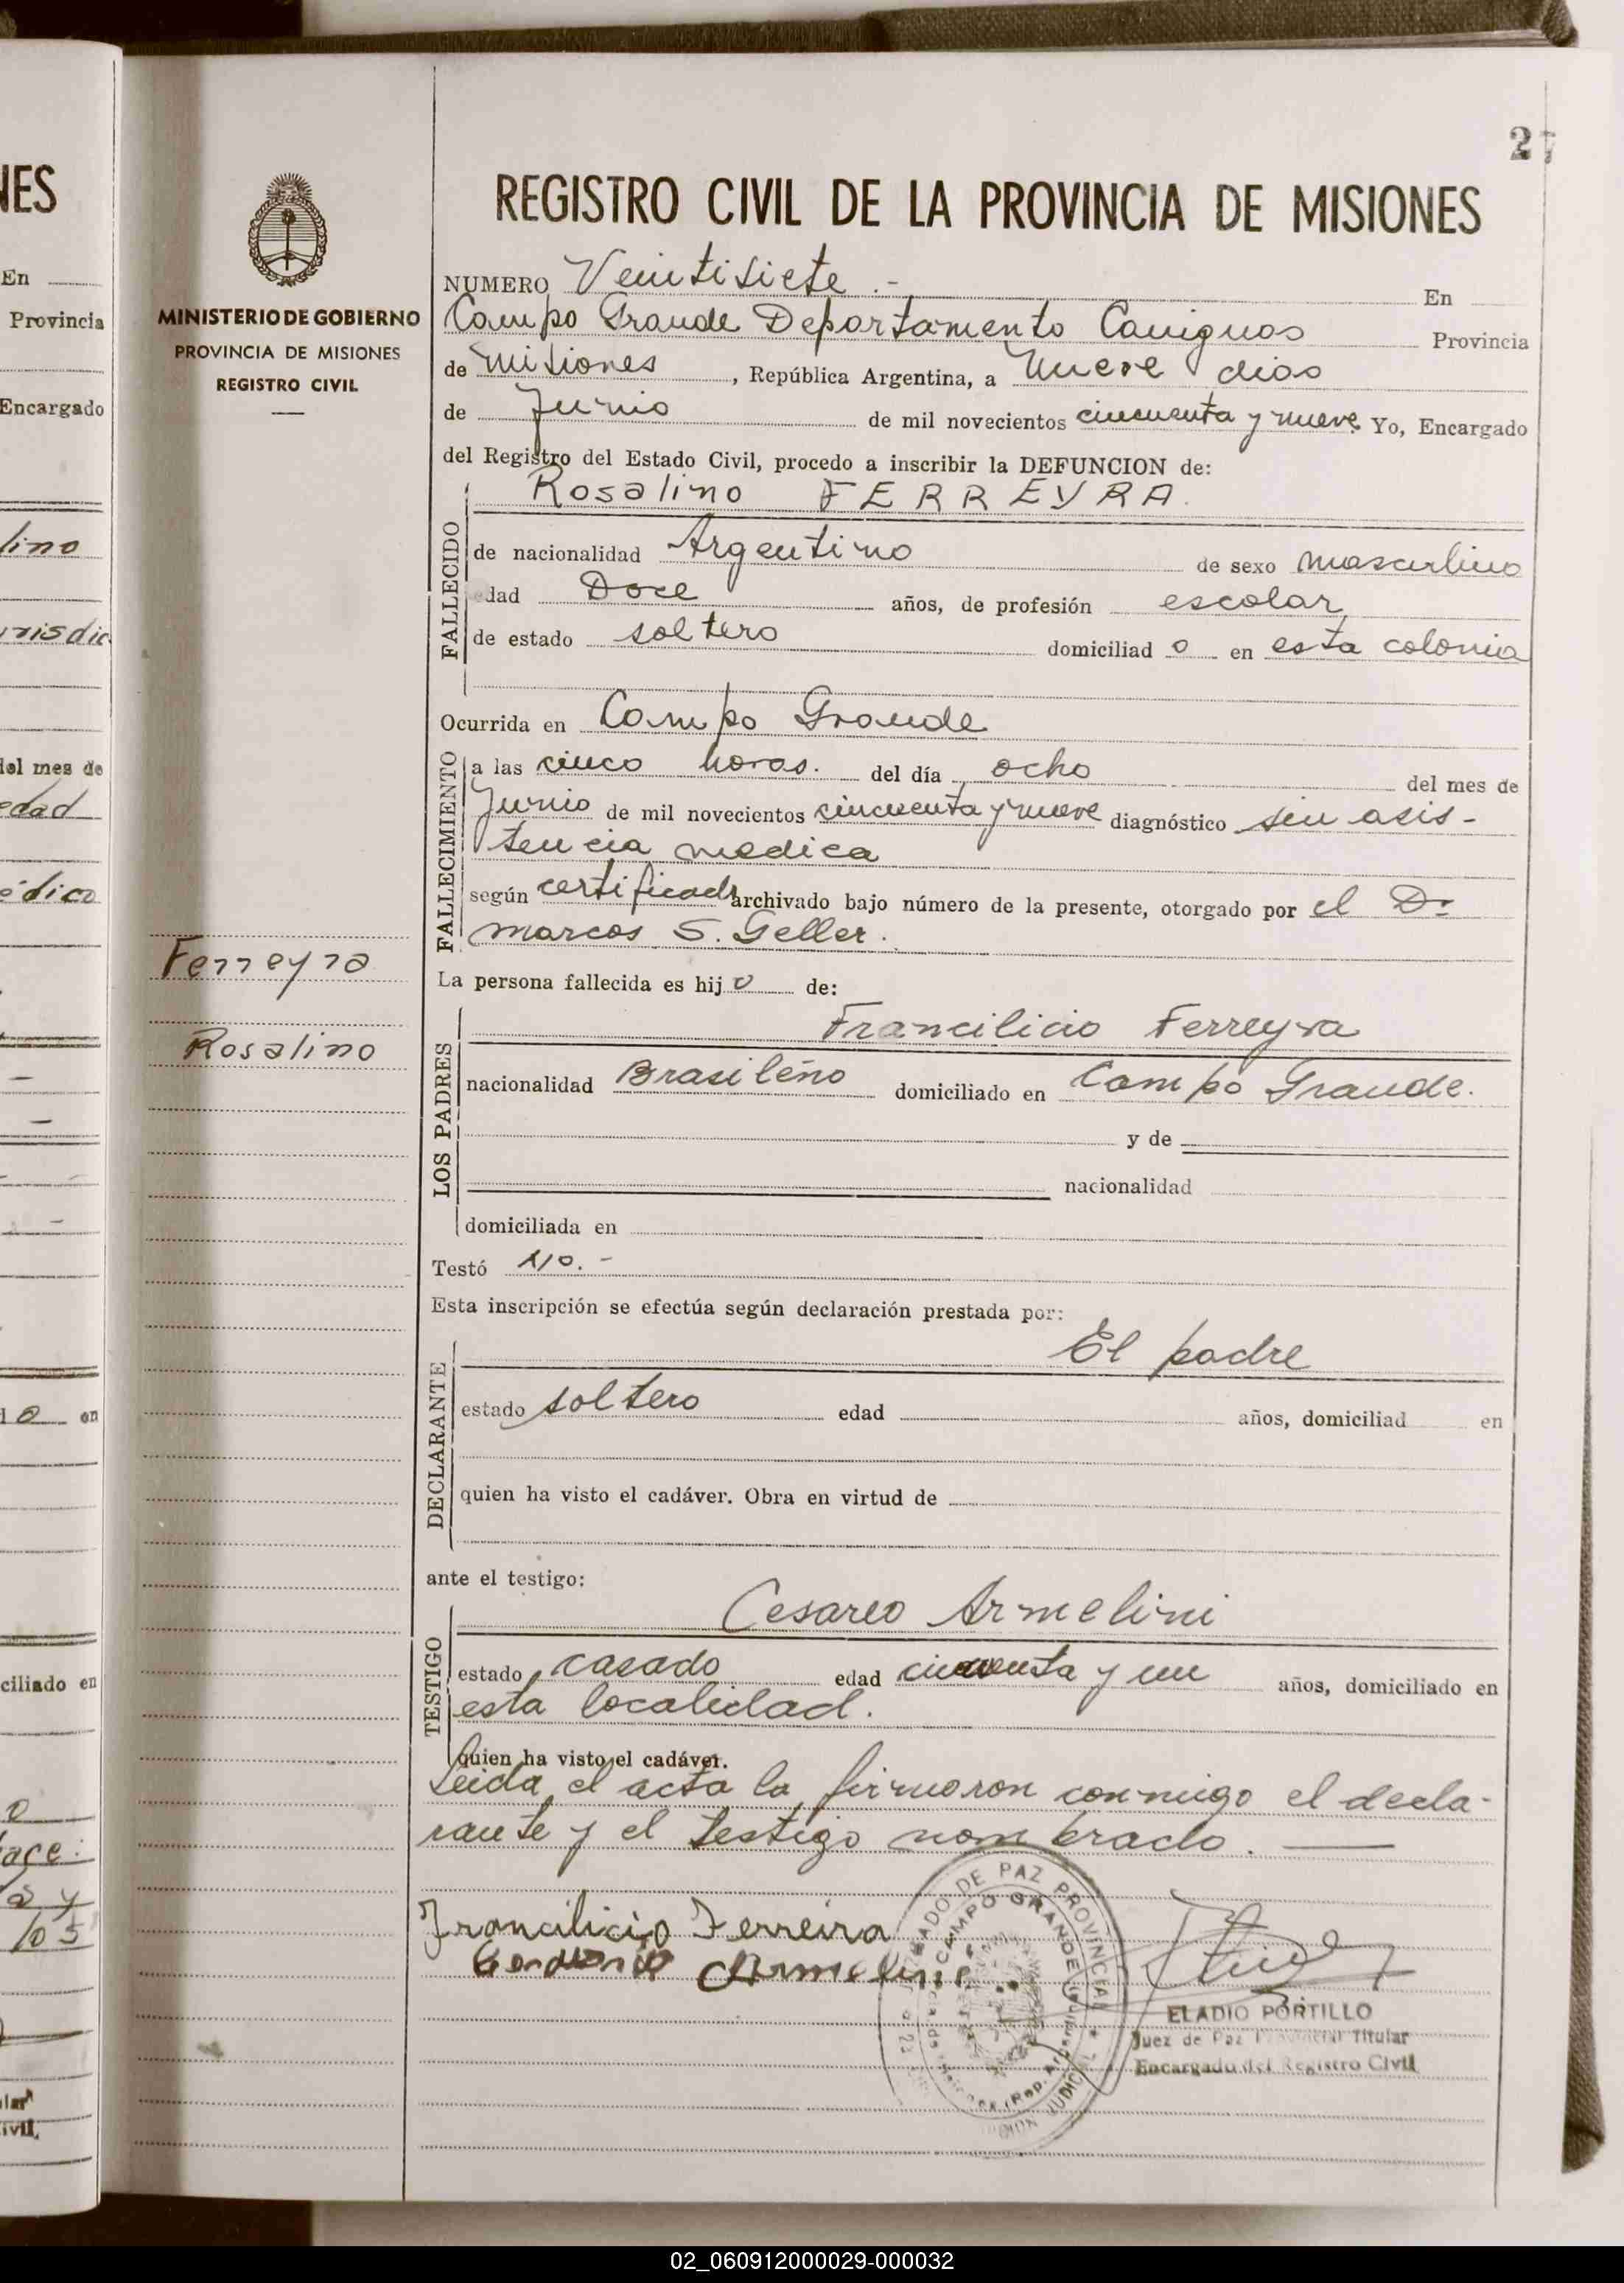 27
REGISTRO CIVIL DE LA PROVINCIA DE MISIONES
MINISTERIO DE GOBIERNO
PROVINCIA DE MISIONES
REGISTRO CIVIL
NUMERO Veintisiete .- En
Campo Grande Departamento Cainguas Provincia
de Misiones, República Argentina, a Nueve dias
de Junio de mil novecientos cincuenta y nueve Yo, Encargado
del Registro del Estado Civil, procedo a inscribir la DEFUNCION de:
Rosalino FERREYRA.
FALLECIDO
de nacionalidad Argentino de sexo masculino
edad Doce años, de profesión escolar
de estado soltero domiciliad o en esta colonia
Ocurrida en Campo Grande
FALLECIMIENTO
a las cinco horas. del día ocho del mes de
Junio de mil novecientos cincuenta y nueve diagnóstico sin asis-
tencia medica
según certificado archivado bajo número de la presente, otorgado por el Dr
Marcos S. Geller.
Ferreyra
Rosalino
La persona fallecida es hij o de:
LOS PADRES
Francilicio Ferreyra
nacionalidad Brasileño domiciliado en Campo Grande.
y de
nacionalidad
domiciliada en
Testó no.-
Esta inscripción se efectúa según declaración prestada por:
DECLARANTE
El padre
estado soltero edad años, domiciliad en
quien ha visto el cadáver. Obra en virtud de
ante el testigo:
TESTIGO
Cesareo Armelini
estado casado edad cincuenta y un años, domiciliado en
esta localidad.
quien ha visto el cadáver.
Leida el acta la firmaron conmigo el decla-
rante y el testigo nombrado.
Francilicio Ferreira
Armelini
JUZGADO DE PAZ PROVINCIAL
CAMPO GRANDE
ELADIO PORTILLO
Juez de Paz Titular
Encargado del Registro Civil
02_060912000029-000032